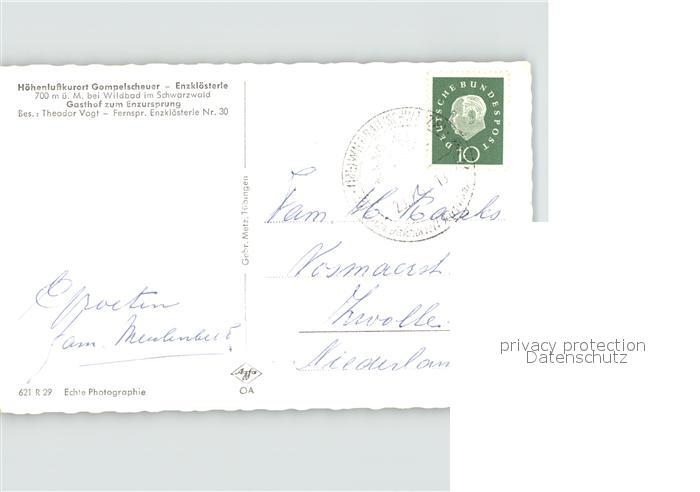 Höhenluftkurort Gompelscheuer – Enzklösterle
700 m ü. M. bei Wildbad im Schwarzwald
Gasthof zum Enzursprung
Bes.: Theodor Vogt – Fernspr. Enzklösterle Nr. 30
DEUTSCHE BUNDESPOST
10
Gebr. Metz, Tübingen
Fam. H.
Vosmaerst.
Zwolle.
Niederlan
Groeten
fam. Meulenbelt
Agfa
621 R 29 Echte Photographie
OA
privacy protection
Datenschutz